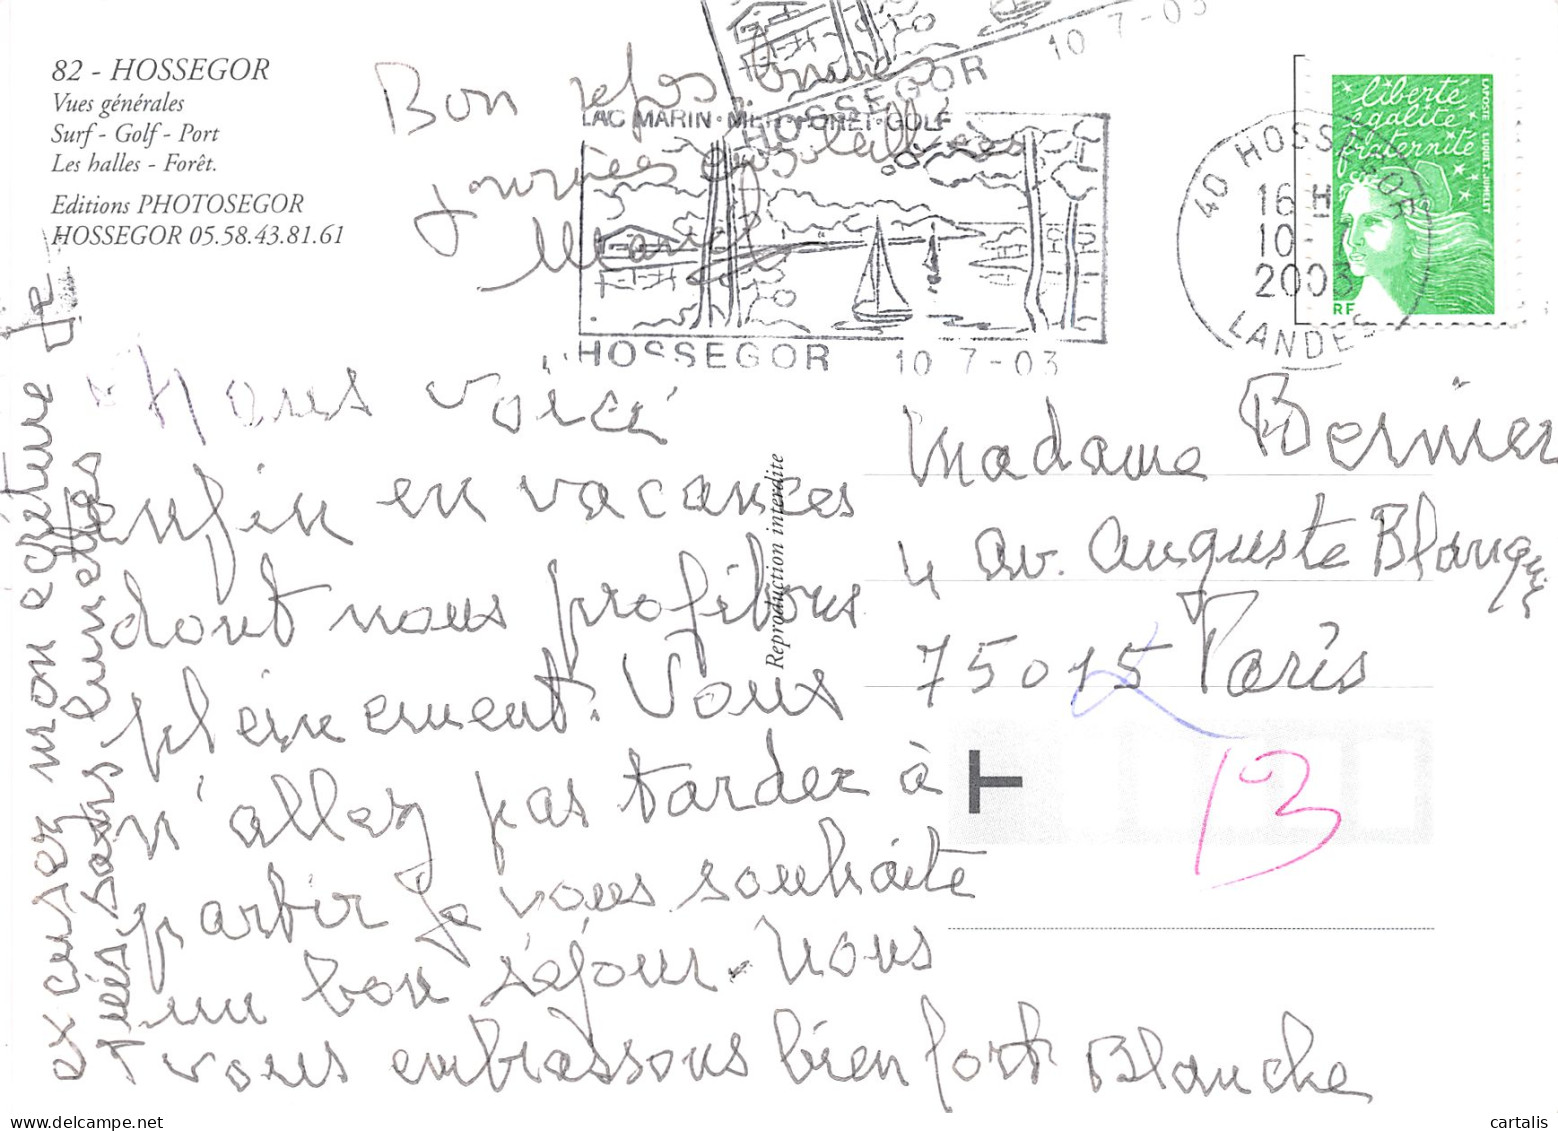 82 - HOSSEGOR
Vues générales
Surf - Golf - Port
Les halles - Forêt.
Editions PHOTOSEGOR
HOSSEGOR 05.58.43.81.61
Bon repos
journées ensoleillées
HOSSEGOR
10 7-03
LAC MARIN · GOLF
HOSSEGOR 10 7-03
40 HOSSEGOR
16 H
10-7
2003
LANDES
liberté
égalité
fraternité
LAPOSTE LUQUET-JUMELET
RF
Nous voici
enfin en vacances
dont nous profitons
pleinement. Vous
n'allez pas tarder à
partir je vous souhaite
un bon séjour. Nous
vous embrassons bien fort Blanche
excusez mon écriture je
suis sans lunettes
Reproduction interdite
Madame Bernier
4 av. Auguste Blanqui
75015 Paris
T
13
cartalis